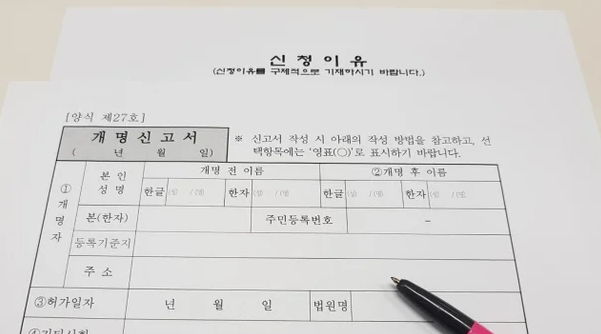 신청이유
(신청이유를 구체적으로 기재하시기 바랍니다.)
[양식 제27호]
개명신고서
( 년 월 일)
※ 신고서 작성 시 아래의 작성 방법을 참고하고, 선
택항목에는 '영표(○)'로 표시하기 바랍니다.
①개명자
본인성명
개명 전 이름
②개명 후 이름
한글 (성) / (명) 한자 (성) / (명) 한글 (성) / (명) 한자 (성) / (명)
본(한자) 주민등록번호 -
등록기준지
주소
③허가일자 년 월 일 법원명
④기타사항